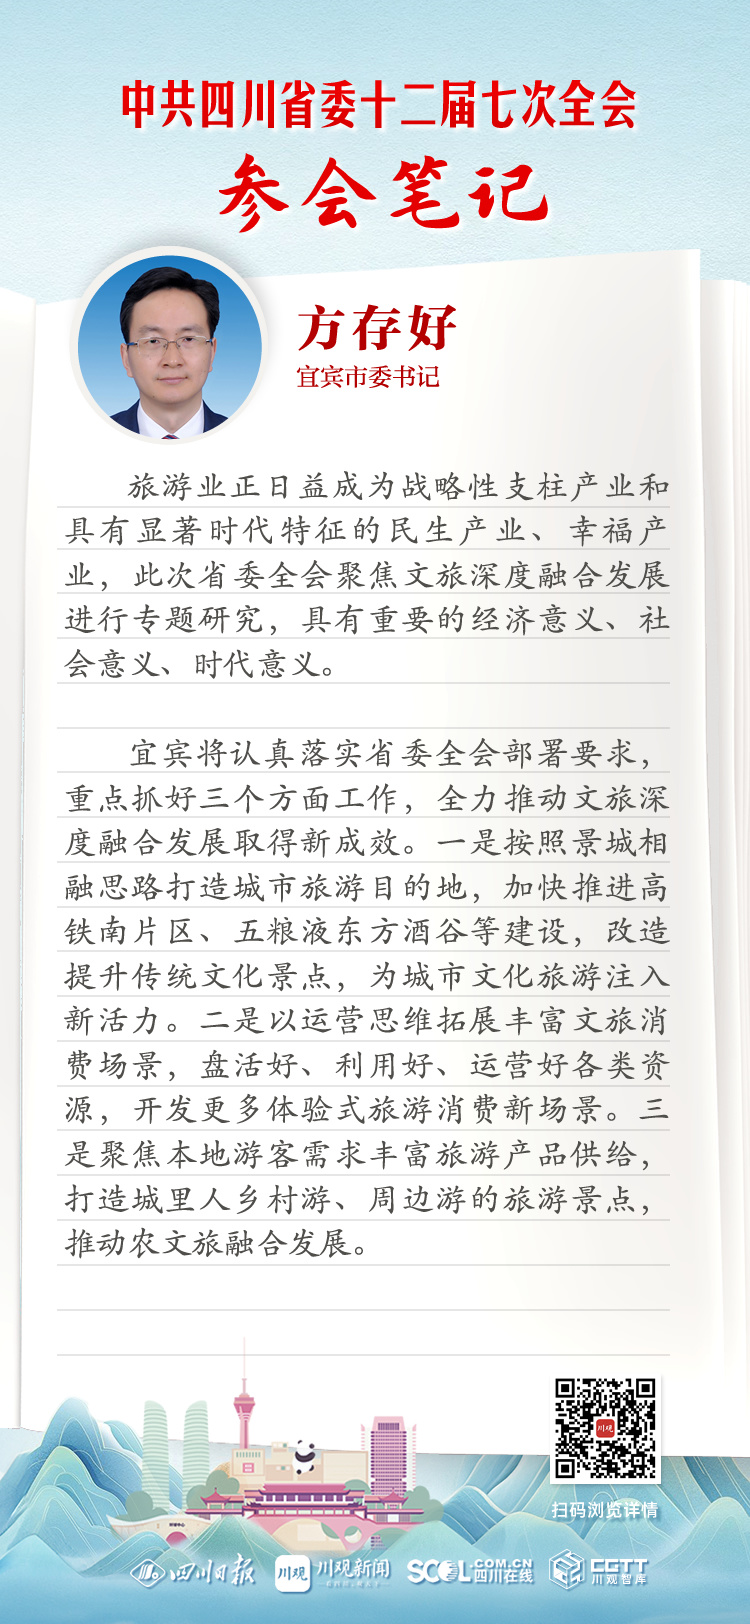 中共四川省委十二届七次全会
参会笔记
方存好
宜宾市委书记
旅游业正日益成为战略性支柱产业和
具有显著时代特征的民生产业、幸福产
业，此次省委全会聚焦文旅深度融合发展
进行专题研究，具有重要的经济意义、社
会意义、时代意义。
宜宾将认真落实省委全会部署要求，
重点抓好三个方面工作，全力推动文旅深
度融合发展取得新成效。一是按照景城相
融思路打造城市旅游目的地，加快推进高
铁南片区、五粮液东方酒谷等建设，改造
提升传统文化景点，为城市文化旅游注入
新活力。二是以运营思维拓展丰富文旅消
费场景，盘活好、利用好、运营好各类资
源，开发更多体验式旅游消费新场景。三
是聚焦本地游客需求丰富旅游产品供给，
打造城里人乡村游、周边游的旅游景点，
推动农文旅融合发展。
川观
扫码浏览详情
四川日报
川观
川观新闻
SCOL.COM.CN
四川在线
CGTT
川观智库